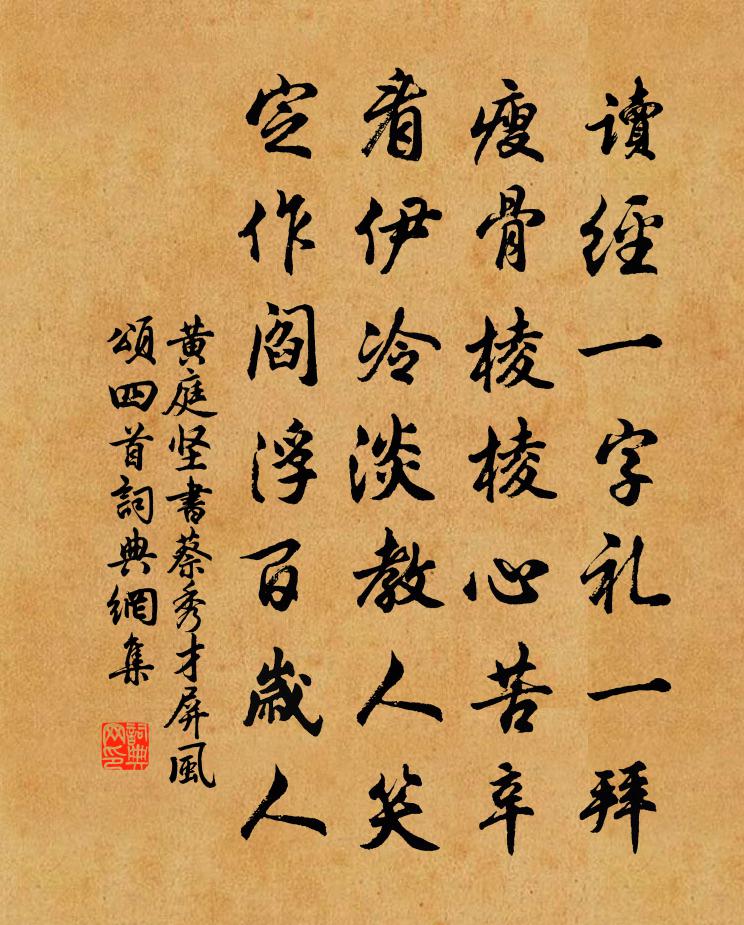 讀經一字礼一拜
瘦骨棱棱心苦辛
看伊冷淡教人笑
定作閻浮百歲人
黄庭坚書蔡秀才屏風
頌四首詞典網集
詞典
网印